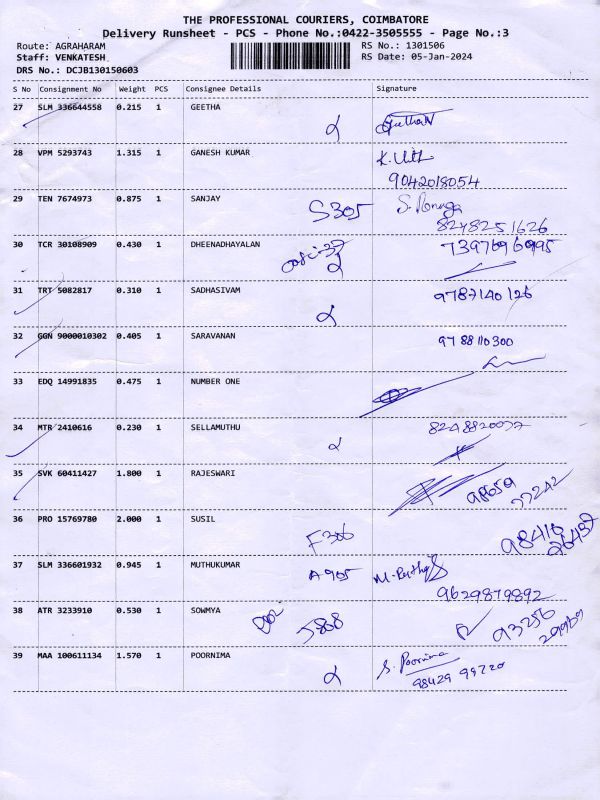 THE PROFESSIONAL COURIERS, COIMBATORE
Delivery Runsheet - PCS - Phone No.:0422-3505555 - Page No.:3
Route: AGRAHARAM RS No.: 1301506
Staff: VENKATESH RS Date: 05-Jan-2024
DRS No.: DCJB130150603
S No Consignment No Weight PCS Consignee Details Signature
27 SLM 336644558 0.215 1 GEETHA
28 VPM 5293743 1.315 1 GANESH KUMAR
9042018054
29 TEN 7674973 0.875 1 SANJAY S305
8248251626
30 TCR 30108909 0.430 1 DHEENADHAYALAN 7397696995
31 TRT 5082817 0.310 1 SADHASIVAM 9787140126
32 GGN 9000010302 0.405 1 SARAVANAN 9788110300
33 EDQ 14991835 0.475 1 NUMBER ONE
34 MTR 2410616 0.230 1 SELLAMUTHU
35 SVK 60411427 1.800 1 RAJESWARI 98659
77242
36 PRO 15769780 2.000 1 SUSIL F306
37 SLM 336601932 0.945 1 MUTHUKUMAR A905
9629879892
38 ATR 3233910 0.530 1 SOWMYA J808 93256
29969
39 MAA 100611134 1.570 1 POORNIMA S. Poornima
98429 99720